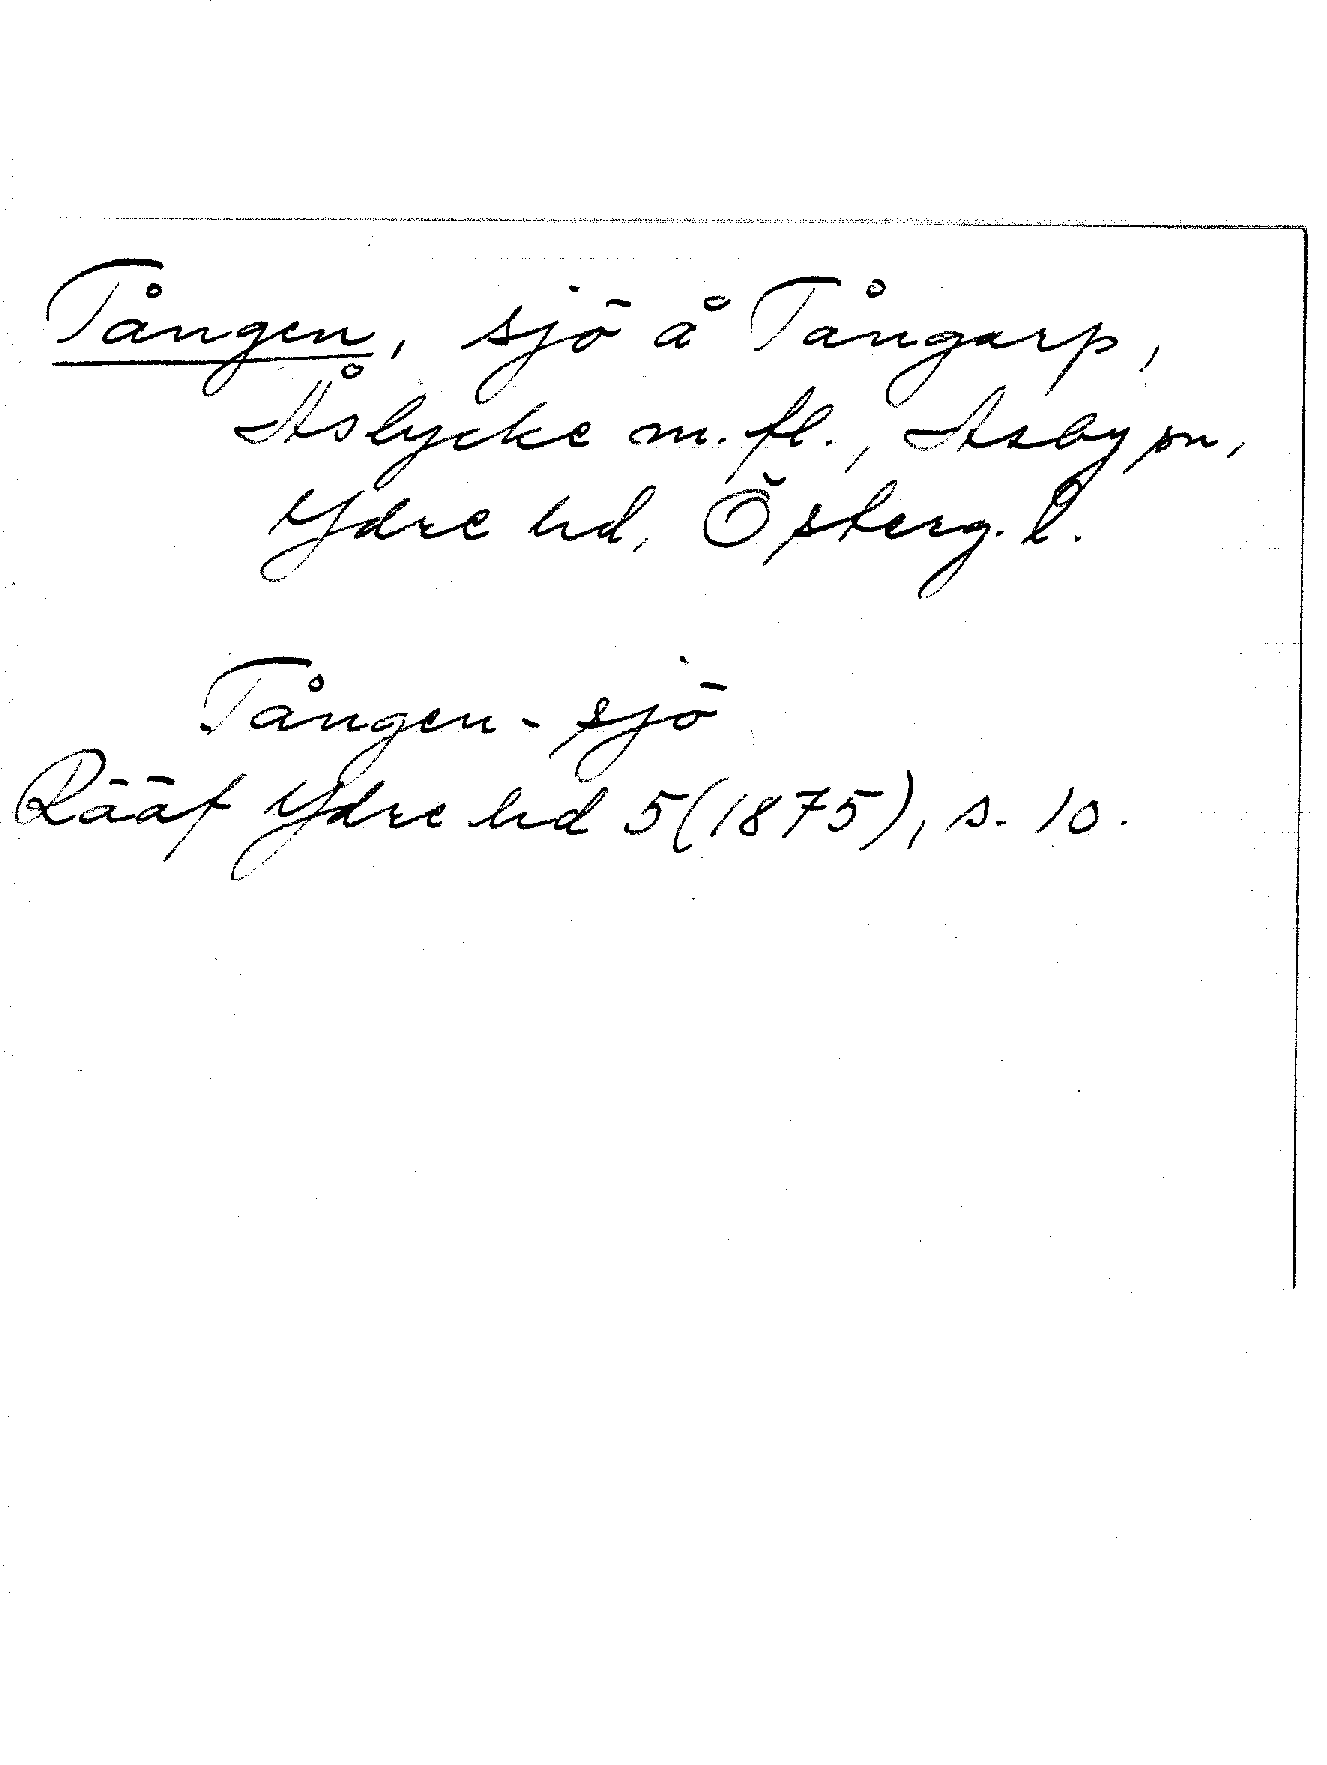 Tången, sjö å Tångarp,
Åslycke m.fl., Asby sn,
Ydre hd, Österg. l.
Tången-sjö
Rääf Ydre hd 5(1875), s. 10.